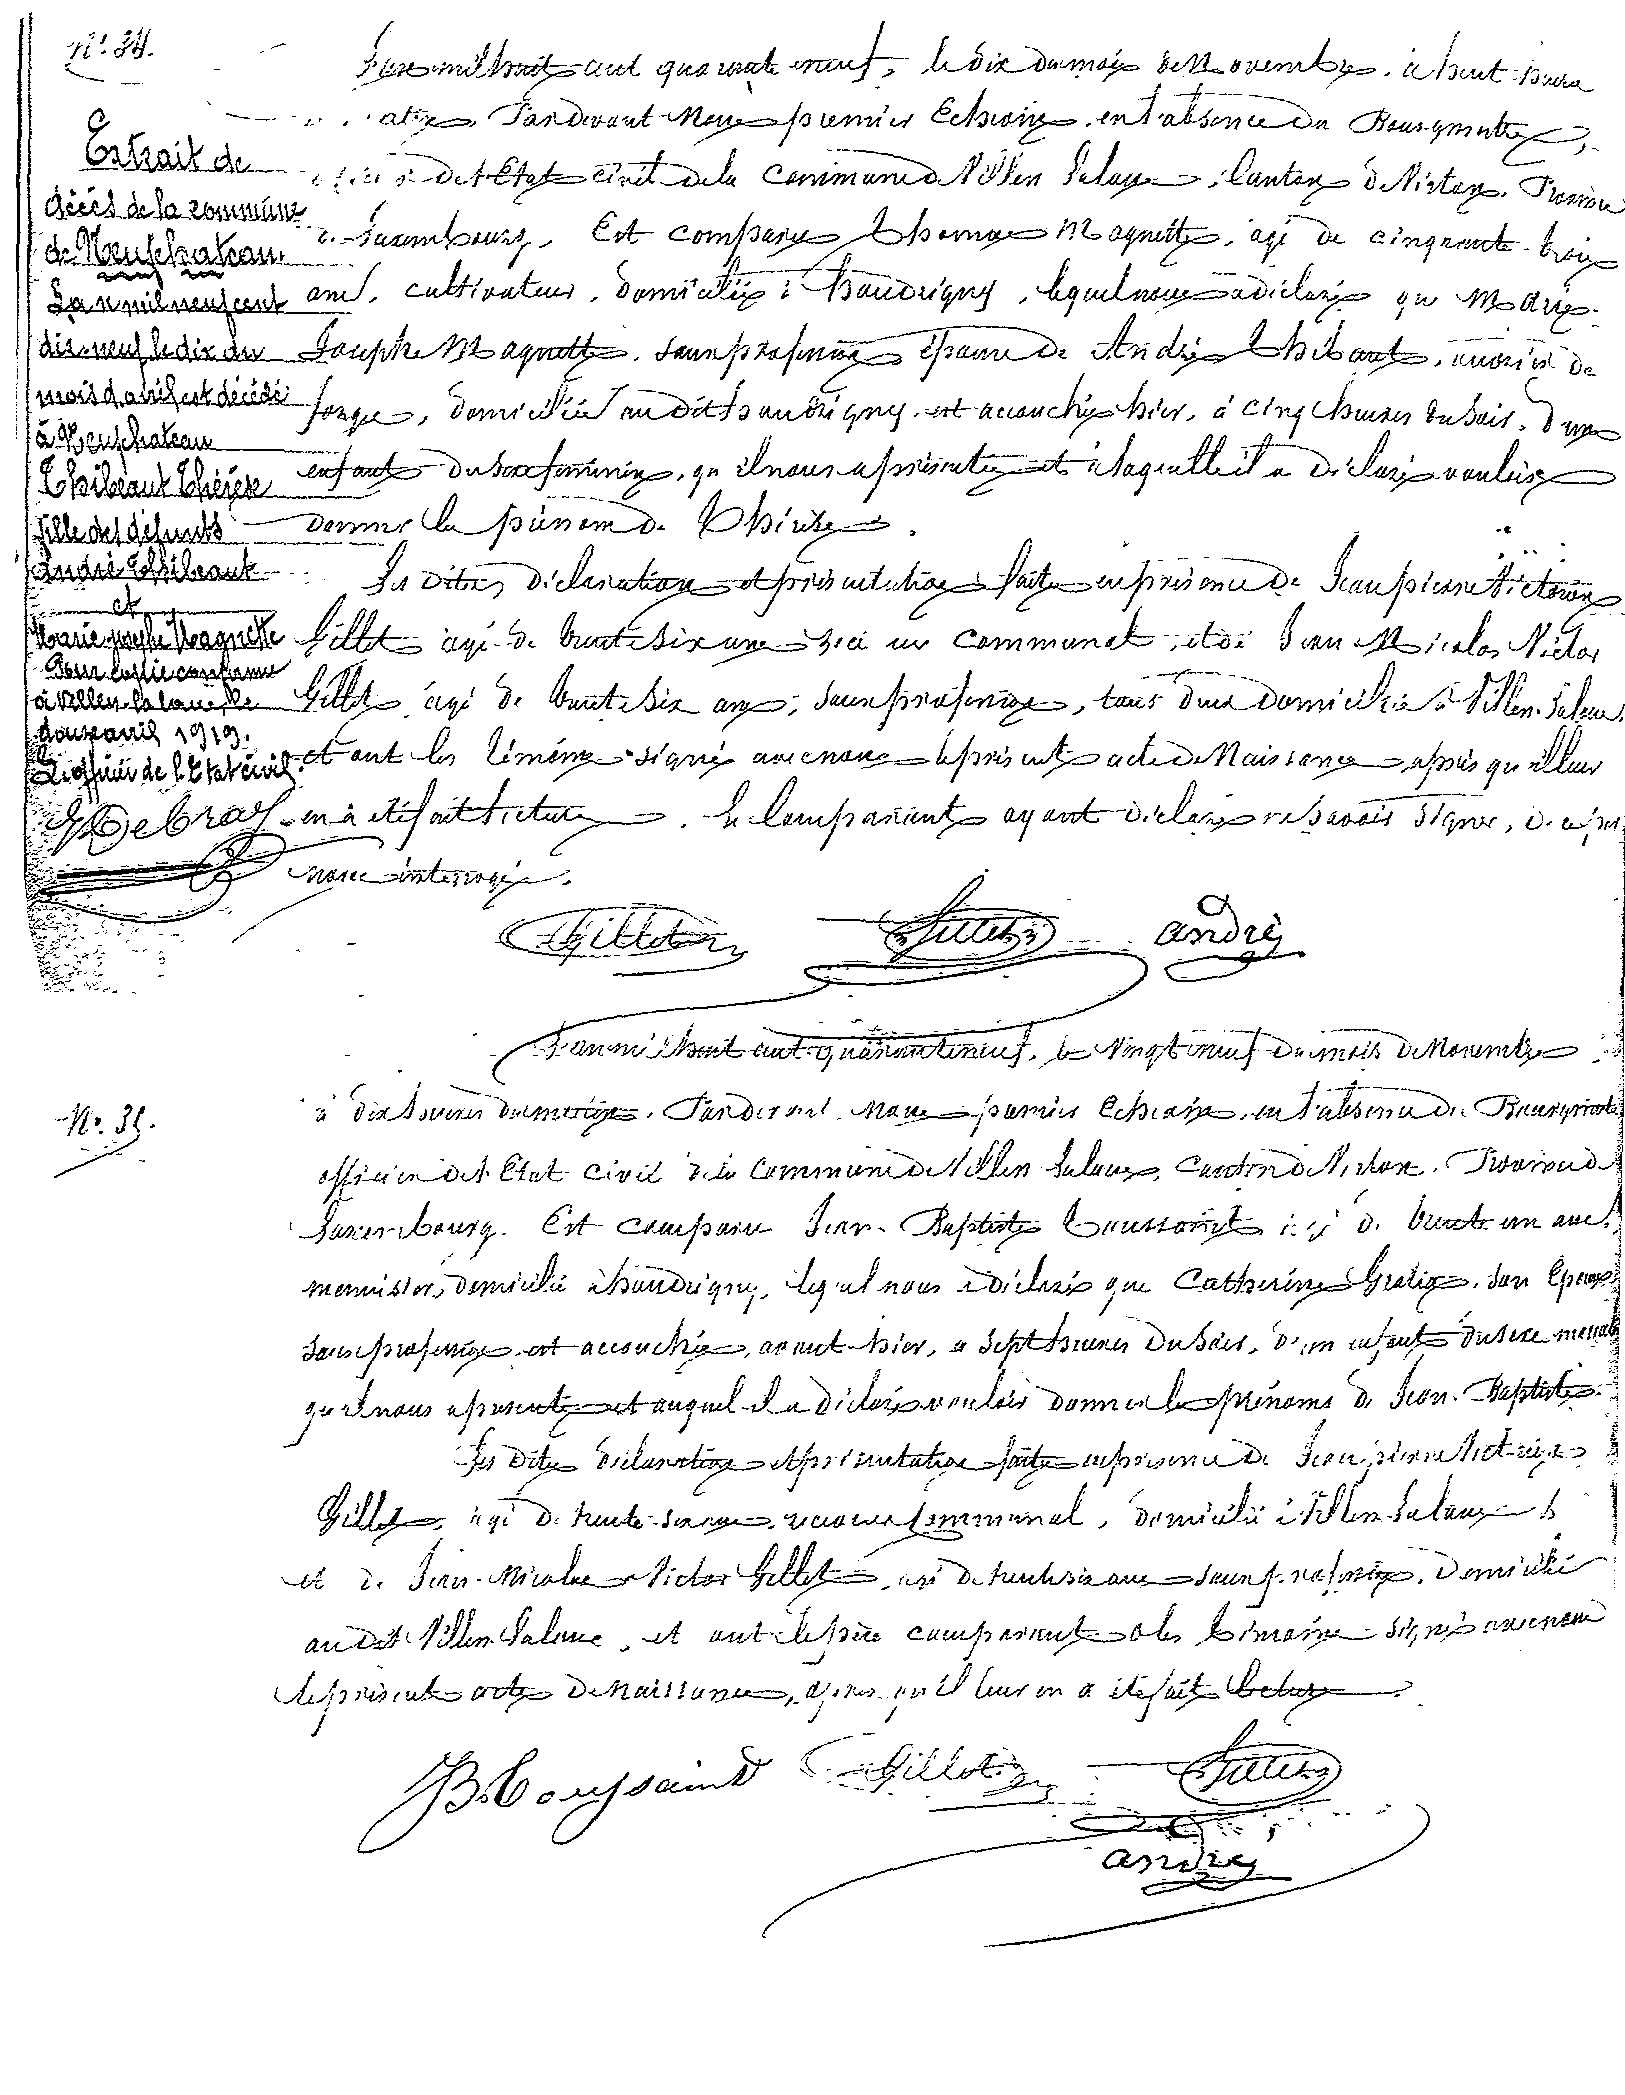 N°. 34.
L'an mil huit cent quarante neuf, le dix du mois de Novembre, à huit heures
du matin, Pardevant Nous premier Echevin, en l'absence du Bourgmestre,
officier de l'Etat civil de la commune de Villers Laloue, Canton de Virton, Province
de Luxembourg, Est comparu Thomas Magnette, agé de cinquante-trois
ans, cultivateur, domicilié à houdrigny, lequel nous a déclaré que Marie
Josephe Magnette, sans profession épouse de André Thibaut, ouvrier de
forges, domiciliée au dit houdrigny, est accouchée hier, à cinq heures du soir, d'un
enfant du sexe féminin, qu'il nous a présenté et à laquelle il a déclaré vouloir
donner le prénom de Thérèse.
Les dites déclaration et présentation faites en présence de Jean pierre Victorin
Gillet agé de trente six ans communal, et de Jean Nicolas Victor
Gillet, agé de trente six ans, sans profession, tous deux domiciliés à Villers-Laloue,
et ont les témoins signé avec nous le présent acte de Naissance après qu'il leur
en a été fait lecture. Le Comparant ayant déclaré ne savoir signer, de ce par
nous interrogé.
Gillet Gillet andré
Extrait de
décès de la commune
de Neufchateau.
L'an mil neuf cent
dix-neuf le dix du
mois d'avril est décédé
à Neufchateau
Thibeaut Thérèse
fille des défunts
André Thibeaut
et
Marie josephe Magnette
Pour copie conforme
à Villers-la-loue, le
douze avril 1919.
L'officier de l'Etat civil.
N°. 35.
L'an mil huit cent quarante neuf, le vingt neuf du mois de Novembre
à dix heures du matin, Pardevant Nous premier Echevin, en l'absence du Bourgmestre
officier de l'Etat civil de la Commune de Villers Laloue, Canton de Virton, Province de
Luxembourg. Est comparu Jean-Baptiste Toussaint agé de trente un ans,
menuisier, domicilié à houdrigny, lequel nous a déclaré que Catherine son Epouse,
sans profession est accouchée, avant-hier, à sept heures du soir, d'un enfant du sexe masculin
qu'il nous a présenté et auquel il a déclaré vouloir donner les prénoms de Jean-Baptiste.
Les dites déclaration et présentation faites en présence de Jean pierre Victorin
Gillet, agé de trente-six ans, receveur Communal, domicilié à Villers-Laloue
et de Jean-Nicolas Victor Gillet, agé de trente six ans sans profession, domicilié
au dit Villers Laloue, et ont le père comparant & les témoins signé avec nous
le présent acte de Naissance, après qu'il leur en a été fait lecture.
JB. Toussaint Gillet Gillet
andré